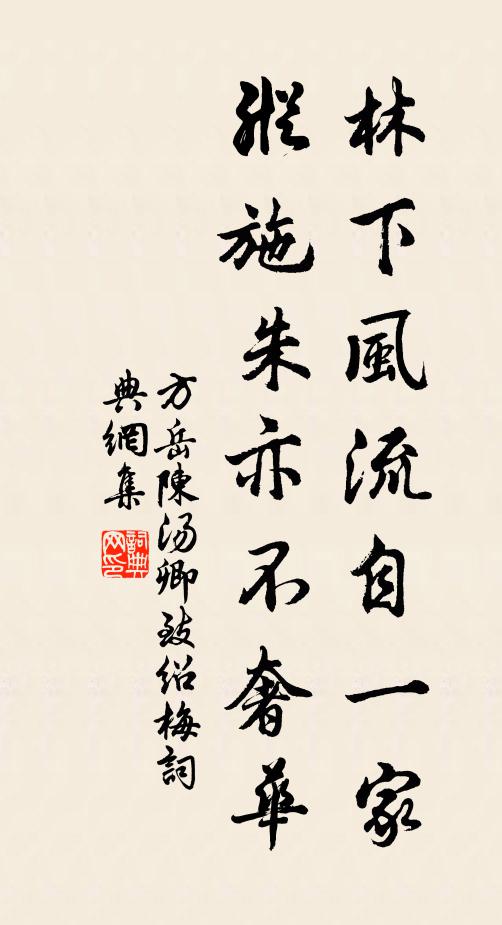 林下風流自一家
縱施朱亦不奢華
方岳陳汤卿致绍梅詞
典網集
詞典
网印